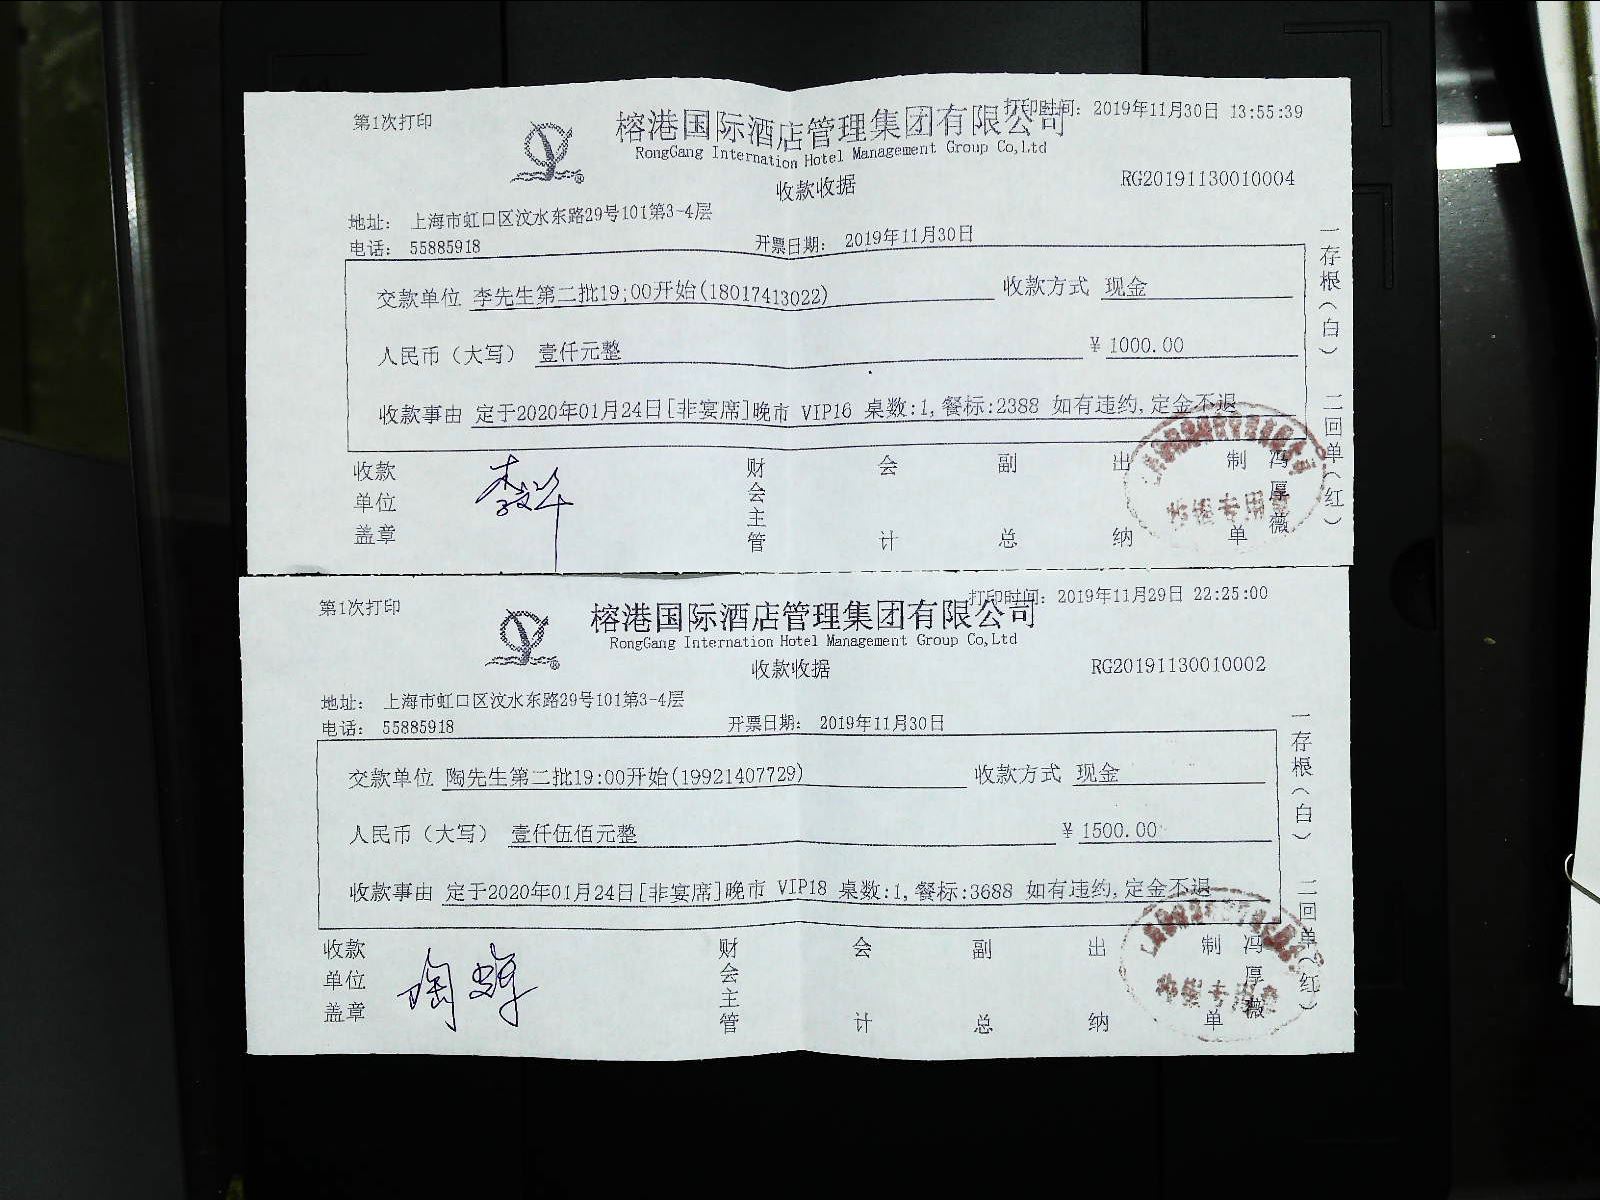 第1次打印
打印时间: 2019年11月30日 13:55:39
榕港国际酒店管理集团有限公司
RongGang Internation Hotel Management Group Co,Ltd
收款收据
RG20191130010004
地址: 上海市虹口区汶水东路29号101第3-4层
电话: 55885918
开票日期: 2019年11月30日
交款单位 李先生第二批19;00开始(18017413022) 收款方式 现金
人民币(大写) 壹仟元整 ¥ 1000.00
收款事由 定于2020年01月24日[非宴席]晚市 VIP16 桌数:1,餐标:2388 如有违约,定金不退
一存根(白) 二回单(红)
收款单位盖章
财会主管 会计 副总 出纳 制单 冯厚薇
第1次打印
打印时间: 2019年11月29日 22:25:00
榕港国际酒店管理集团有限公司
RongGang Internation Hotel Management Group Co,Ltd
收款收据
RG20191130010002
地址: 上海市虹口区汶水东路29号101第3-4层
电话: 55885918
开票日期: 2019年11月30日
交款单位 陶先生第二批19:00开始(19921407729) 收款方式 现金
人民币(大写) 壹仟伍佰元整 ¥ 1500.00
收款事由 定于2020年01月24日[非宴席]晚市 VIP18 桌数:1,餐标:3688 如有违约,定金不退
一存根(白) 二回单(红)
收款单位盖章
财会主管 会计 副总 出纳 制单 冯厚薇